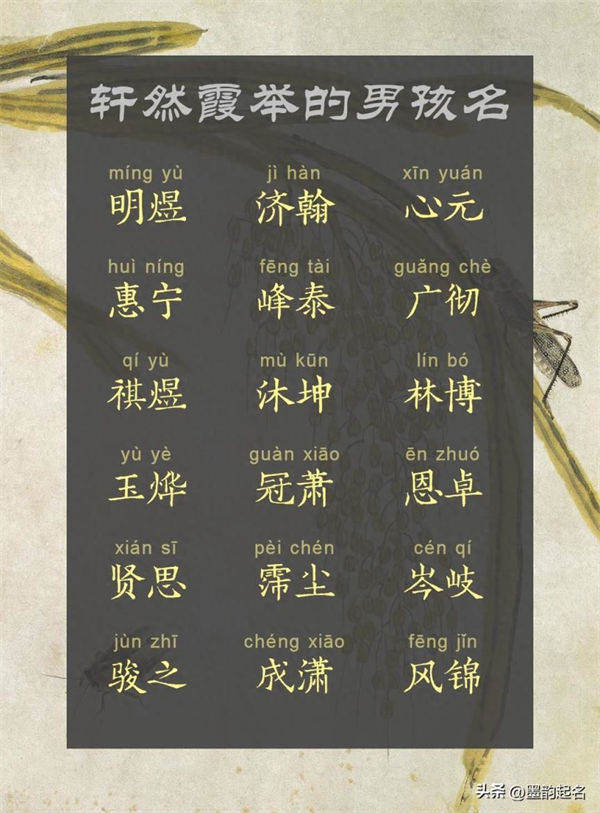 轩然霞举的男孩名
míng yù jì hàn xīn yuán
明煜 济翰 心元
huì níng fēng tài guǎng chè
惠宁 峰泰 广彻
qí yù mù kūn lín bó
祺煜 沐坤 林博
yù yè guàn xiāo ēn zhuó
玉烨 冠萧 恩卓
xián sī pèi chén cén qí
贤思 霈尘 岑岐
jùn zhī chéng xiāo fēng jǐn
骏之 成潇 风锦
头条 @墨韵起名